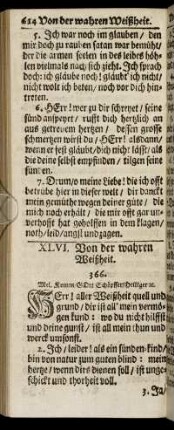 614 Von der wahren Weißheit.
5. Ich war noch im glauben/ den
mir doch zu rauben satan war bemüht/
der die armen seelen in des leibes höh-
len vielmals nach sich zieht. Ich sprach
doch: ich gläube noch! gläubt ich nicht/
nicht wolt ich beten/ noch vor dich hin-
treten.
6. HErr! wer zu dir schreyet/ seine
sünd anspeyet/ rufft dich hertzlich an
aus getreuem hertzen/ dessen grosse
schmertzen wirst du/ HErr! alsdann/
wenn er fest gläubt/ dich nicht läßt/ als
die deine selbst empfinden/ tilgen seine
sünden.
7. Drum/ o meine liebe! die ich offt
betrübe hier in dieser welt/ dir danckt
mein gemüthe wegen deiner güte/ die
mich noch erhält/ die mir offt gar un-
verhofft hat geholffen in dem klagen/
noth/ leid/ angst und zagen.
XLVI. Von der wahren
Weißheit.
366.
Mel. Komm GOtt Schöpffer heiliger ꝛc.
HErr! aller Weißheit quell und
grund/ dir ist all' mein vermö-
gen kund: wo du nicht hilffst
und deine gunst/ ist all mein thun und
werck umsonst.
2. Ich/ leider! als ein sünden-kind/
bin von natur zum guten blind: mein
hertze/ wenn dirs dienen soll/ ist unge-
schickt und thorheit voll.
3. Ja/